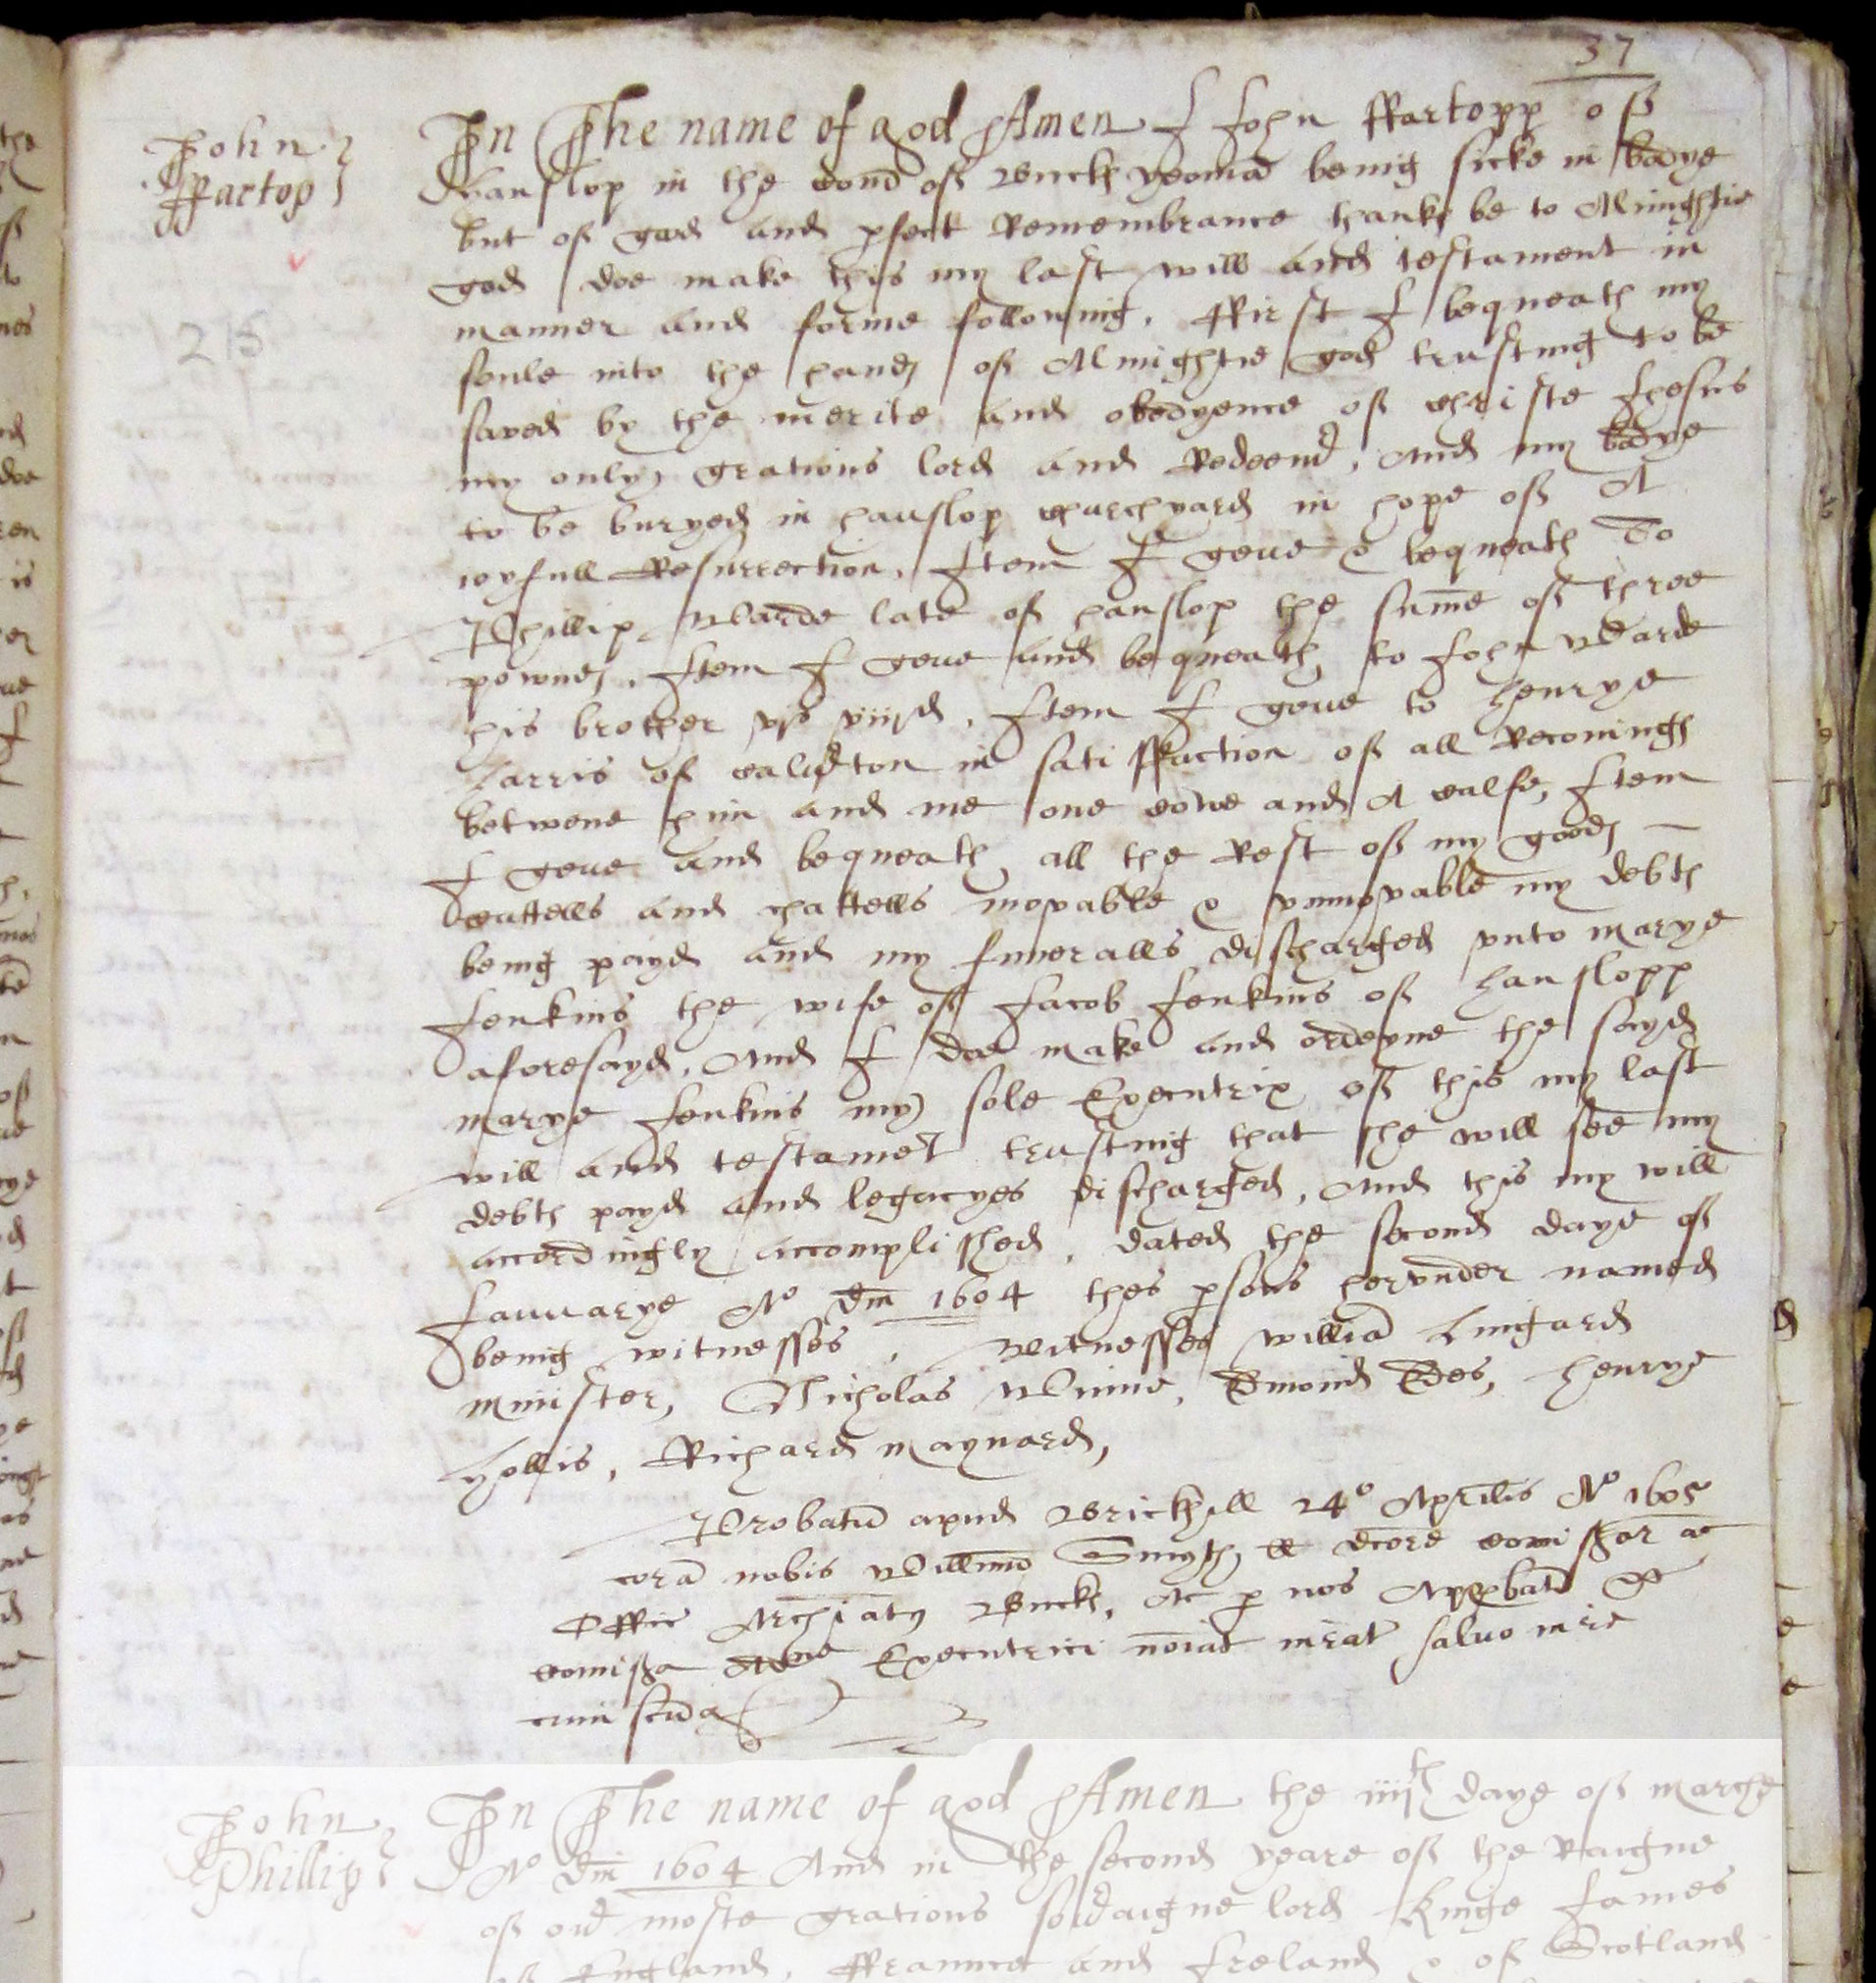 37
John
ffartop
215
In The name of god Amen I John ffartopp of
Hanslop in the Count of Buck yeoman being sicke in bodye
but of good and pfect Remembrance thanks be to Almightie
god doe make this my last will and testament in
manner and forme following. ffirst I bequeath my
soule into the hands of Almightie god trusting to be
saved by the merite and obedyence of Christe Jhesus
my only gratious lord and Redeemer, And my bodye
to be buryed in hanslop Churchyard in hope of A
ioyfull Resurrection. Item I geue & bequeath To
Phillip Warde late of hanslop the sume of three
pownds. Item I geue and bequeath to John Warde
his brother vjs viijd. Item I geue to Henrye
Larris of Caluerton in satisffaction of all Reconings
betwene him and me one Cowe and A Calfe, Item
I geue and bequeath all the Rest of my goods
Cattells and chattells movable & vnmovable my debts
being payd and my funeralls discharged vnto Marye
Jenkins the wife of Jacob Jenkins of hanslopp
aforesayd, And I doe make and ordeyne the sayd
Marye Jenkins my sole Executrix of this my last
will and testamet trusting that she will see my
debts payd and legacyes discharged, And this my will
accordingly accomplished. dated the second daye of
Januarye Ao Dm 1604 thes psons hervnder named
being witnesses. Witnesses William Lingard
minister, Nicholas Winne, Edmond Ees, Henrye
Hollis, Richard Maynard,
Probatu apud Brickhill 24o Aprilis Ao 1605
cora nobis Willmo Smyth ll dcore Comissor ac
Offic Archiatus Bucks, Ac p nos Approbatu &
Comissa Executrici noiat iurat saluo iure
cuiuscuq
John
Phillip
In The name of god Amen the iiiith daye of Marche
Ao Dm 1604 And in the second yeare of the Raigne
of our moste gratious soueraigne lord Kinge James
of England, ffraunce and Ireland & of Scotland